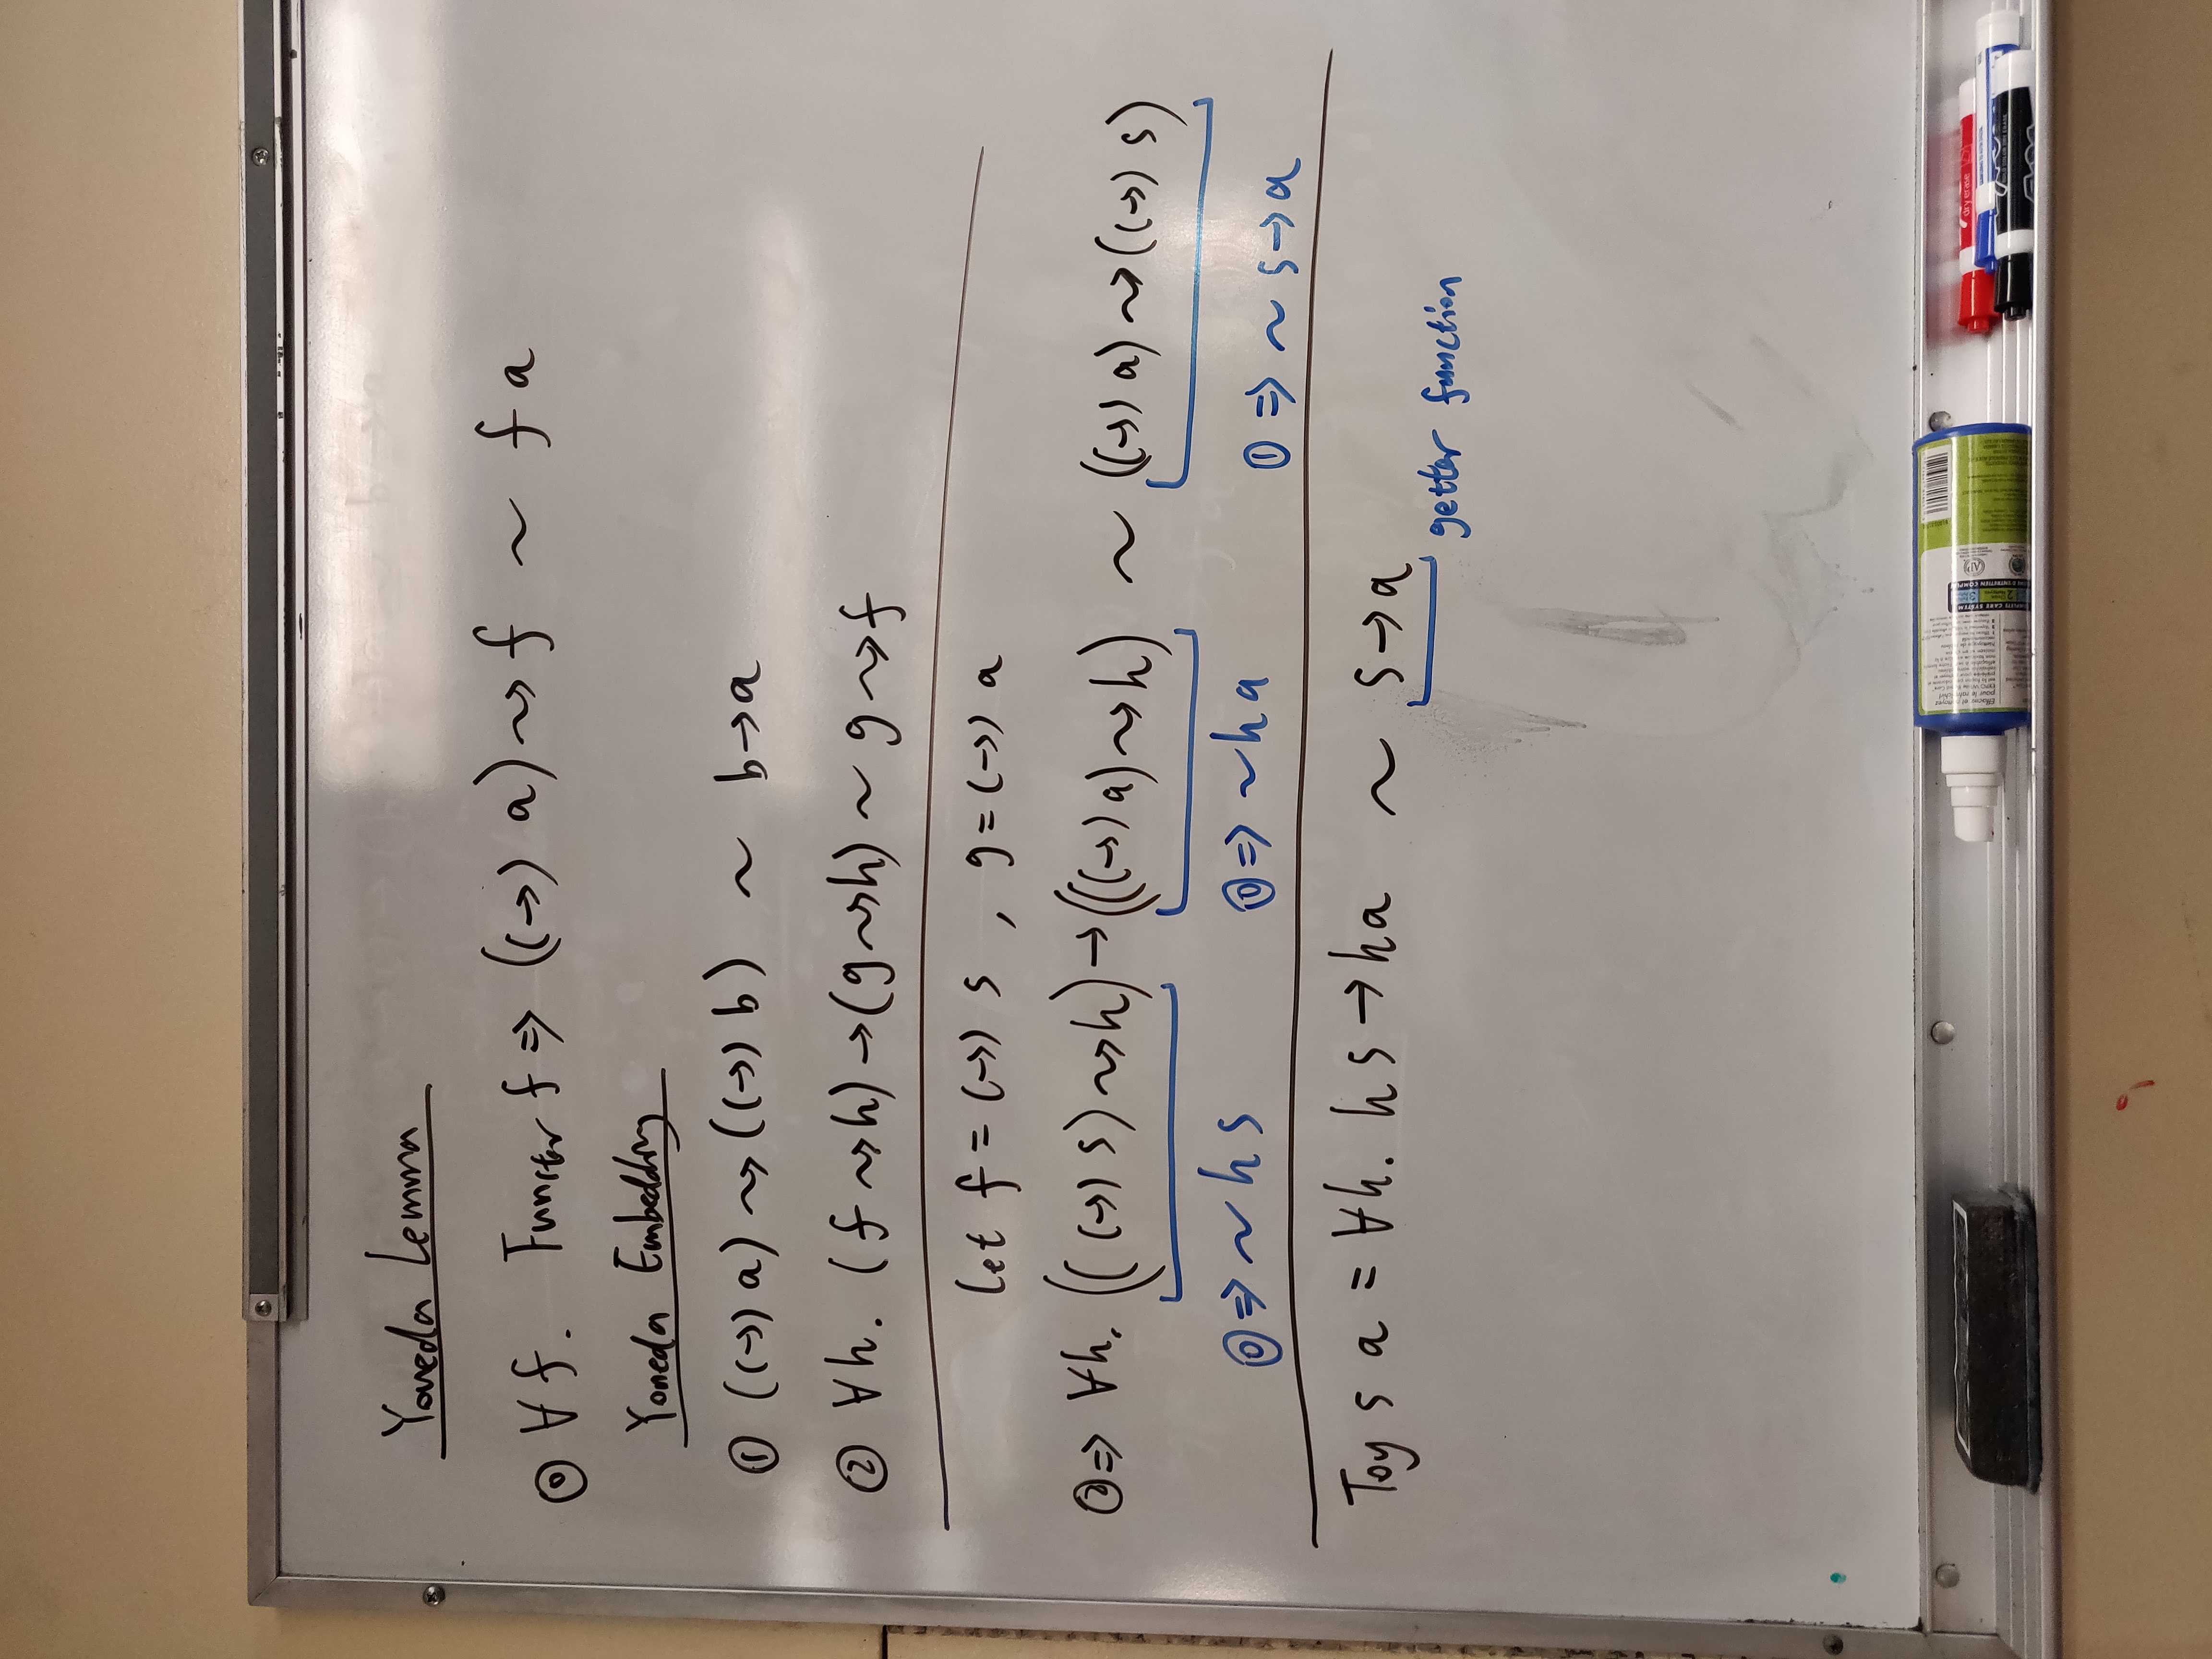 Yoneda Lemma
⓪ ∀f. Functor f ⇒ ((→) a) ⇝ f ~ f a
Yoneda Embedding
① ((→) a) ⇝ ((→) b) ~ b → a
② ∀h. (f ⇝ h) → (g ⇝ h) ~ g ⇝ f
let f = (→) s , g = (→) a
② ⇒ ∀h. (((→) s) ⇝ h) → (((→) a) ⇝ h) ~ ((→) a) ⇝ ((→) s)
⓪ ⇒ ~ h s ⓪ ⇒ ~ h a ① ⇒ ~ s → a
Toy s a = ∀h. h s → h a ~ s → a
getter function
dry erase